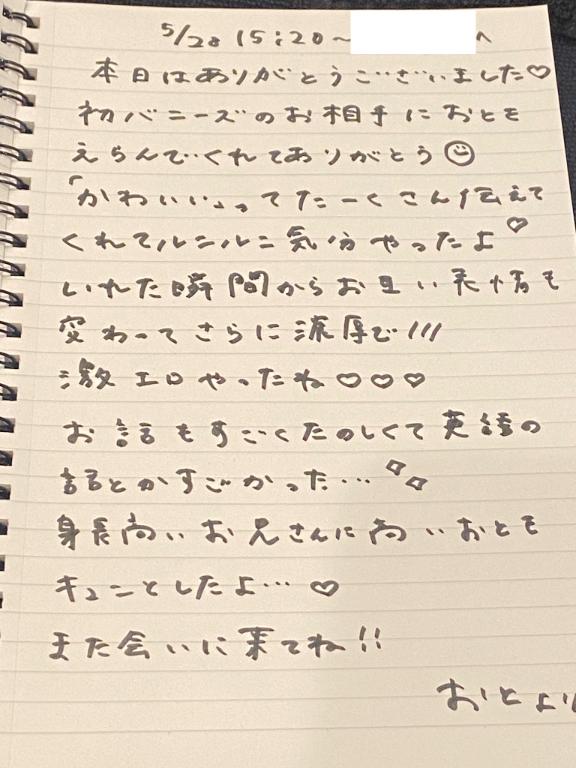 5/28 15:20〜 へ
本日はありがとうございました♡
初バニーズのお相手におとを
えらんでくれてありがとう☺
「かわいい」ってたーくさん伝えて
くれてルンルン気分やったよ♡
いれた瞬間からお互い表情も
変わってさらに濃厚で///
激エロやったね♡♡♡
お話もすごくたのしくて英語の
話とかすごかった…
身長高いお兄さんに おとも
キュンとしたよ…♡
また会いに来てね!!
おとより